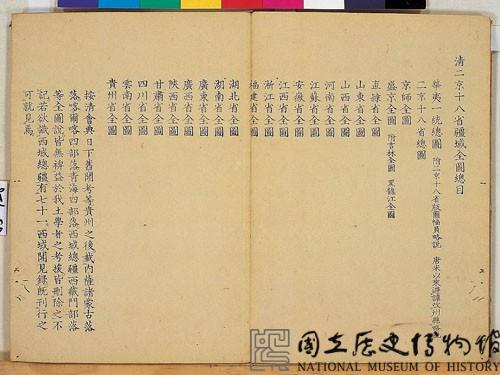 清二京十八省疆域全圖總目
華夷一統總圖 附二京十八省版圖幅員略說 唐宋以來海諸攺州縣略
二京十八省總圖
京師全圖
盛京全圖 附吉林全圖 黑龍江全圖
直隷省全圖
山東省全圖
山西省全圖
河南省全圖
江蘇省全圖
安徽省全圖
江西省全圖
浙江省全圖
福建省全圖
湖北省全圖
湖南省全圖
廣東省全圖
廣西省全圖
陝西省全圖
甘肅省全圖
四川省全圖
雲南省全圖
貴州省全圖
按清會典日下舊聞考等貴州之後載內薩諸蒙古落
落喀爾喀四部落青海四部落西域總疆西藏門部落
等全圖說皆無裨益於我土學者之考援皆刪除之不
記若欲識西域總疆有七十一西域聞見錄旣刊行之
可就見焉
國立歷史博物館
NATIONAL MUSEUM OF HISTORY